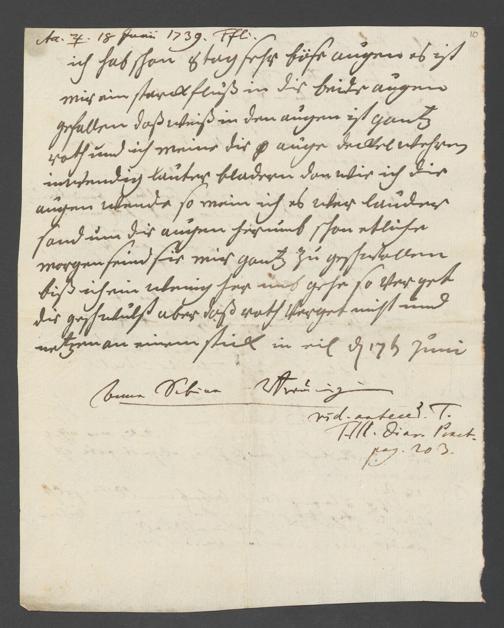 18 Juni 1739.
ich hab schon 8 tag sehr böse augen es ist
mir ein starck fluß in die beide augen
gefallen daß weiß in den augen ist gantz
roth und ich meine die auge deckel wehren
inwendig lauter bladern dan wie ich die
augen wende so mein ich es wer lauder
sand um die augen herumb schon etliche
morgen seind sie mir gantz zu geschwollen
biß ich ein wenig her umb gehe so verget
die geschwulst aber daß roth verget nicht und
an einem stück in eil d 17t Juni
Anna Sabina
vid. anteced. T.
Diar. Pract.
pag. 203.
10